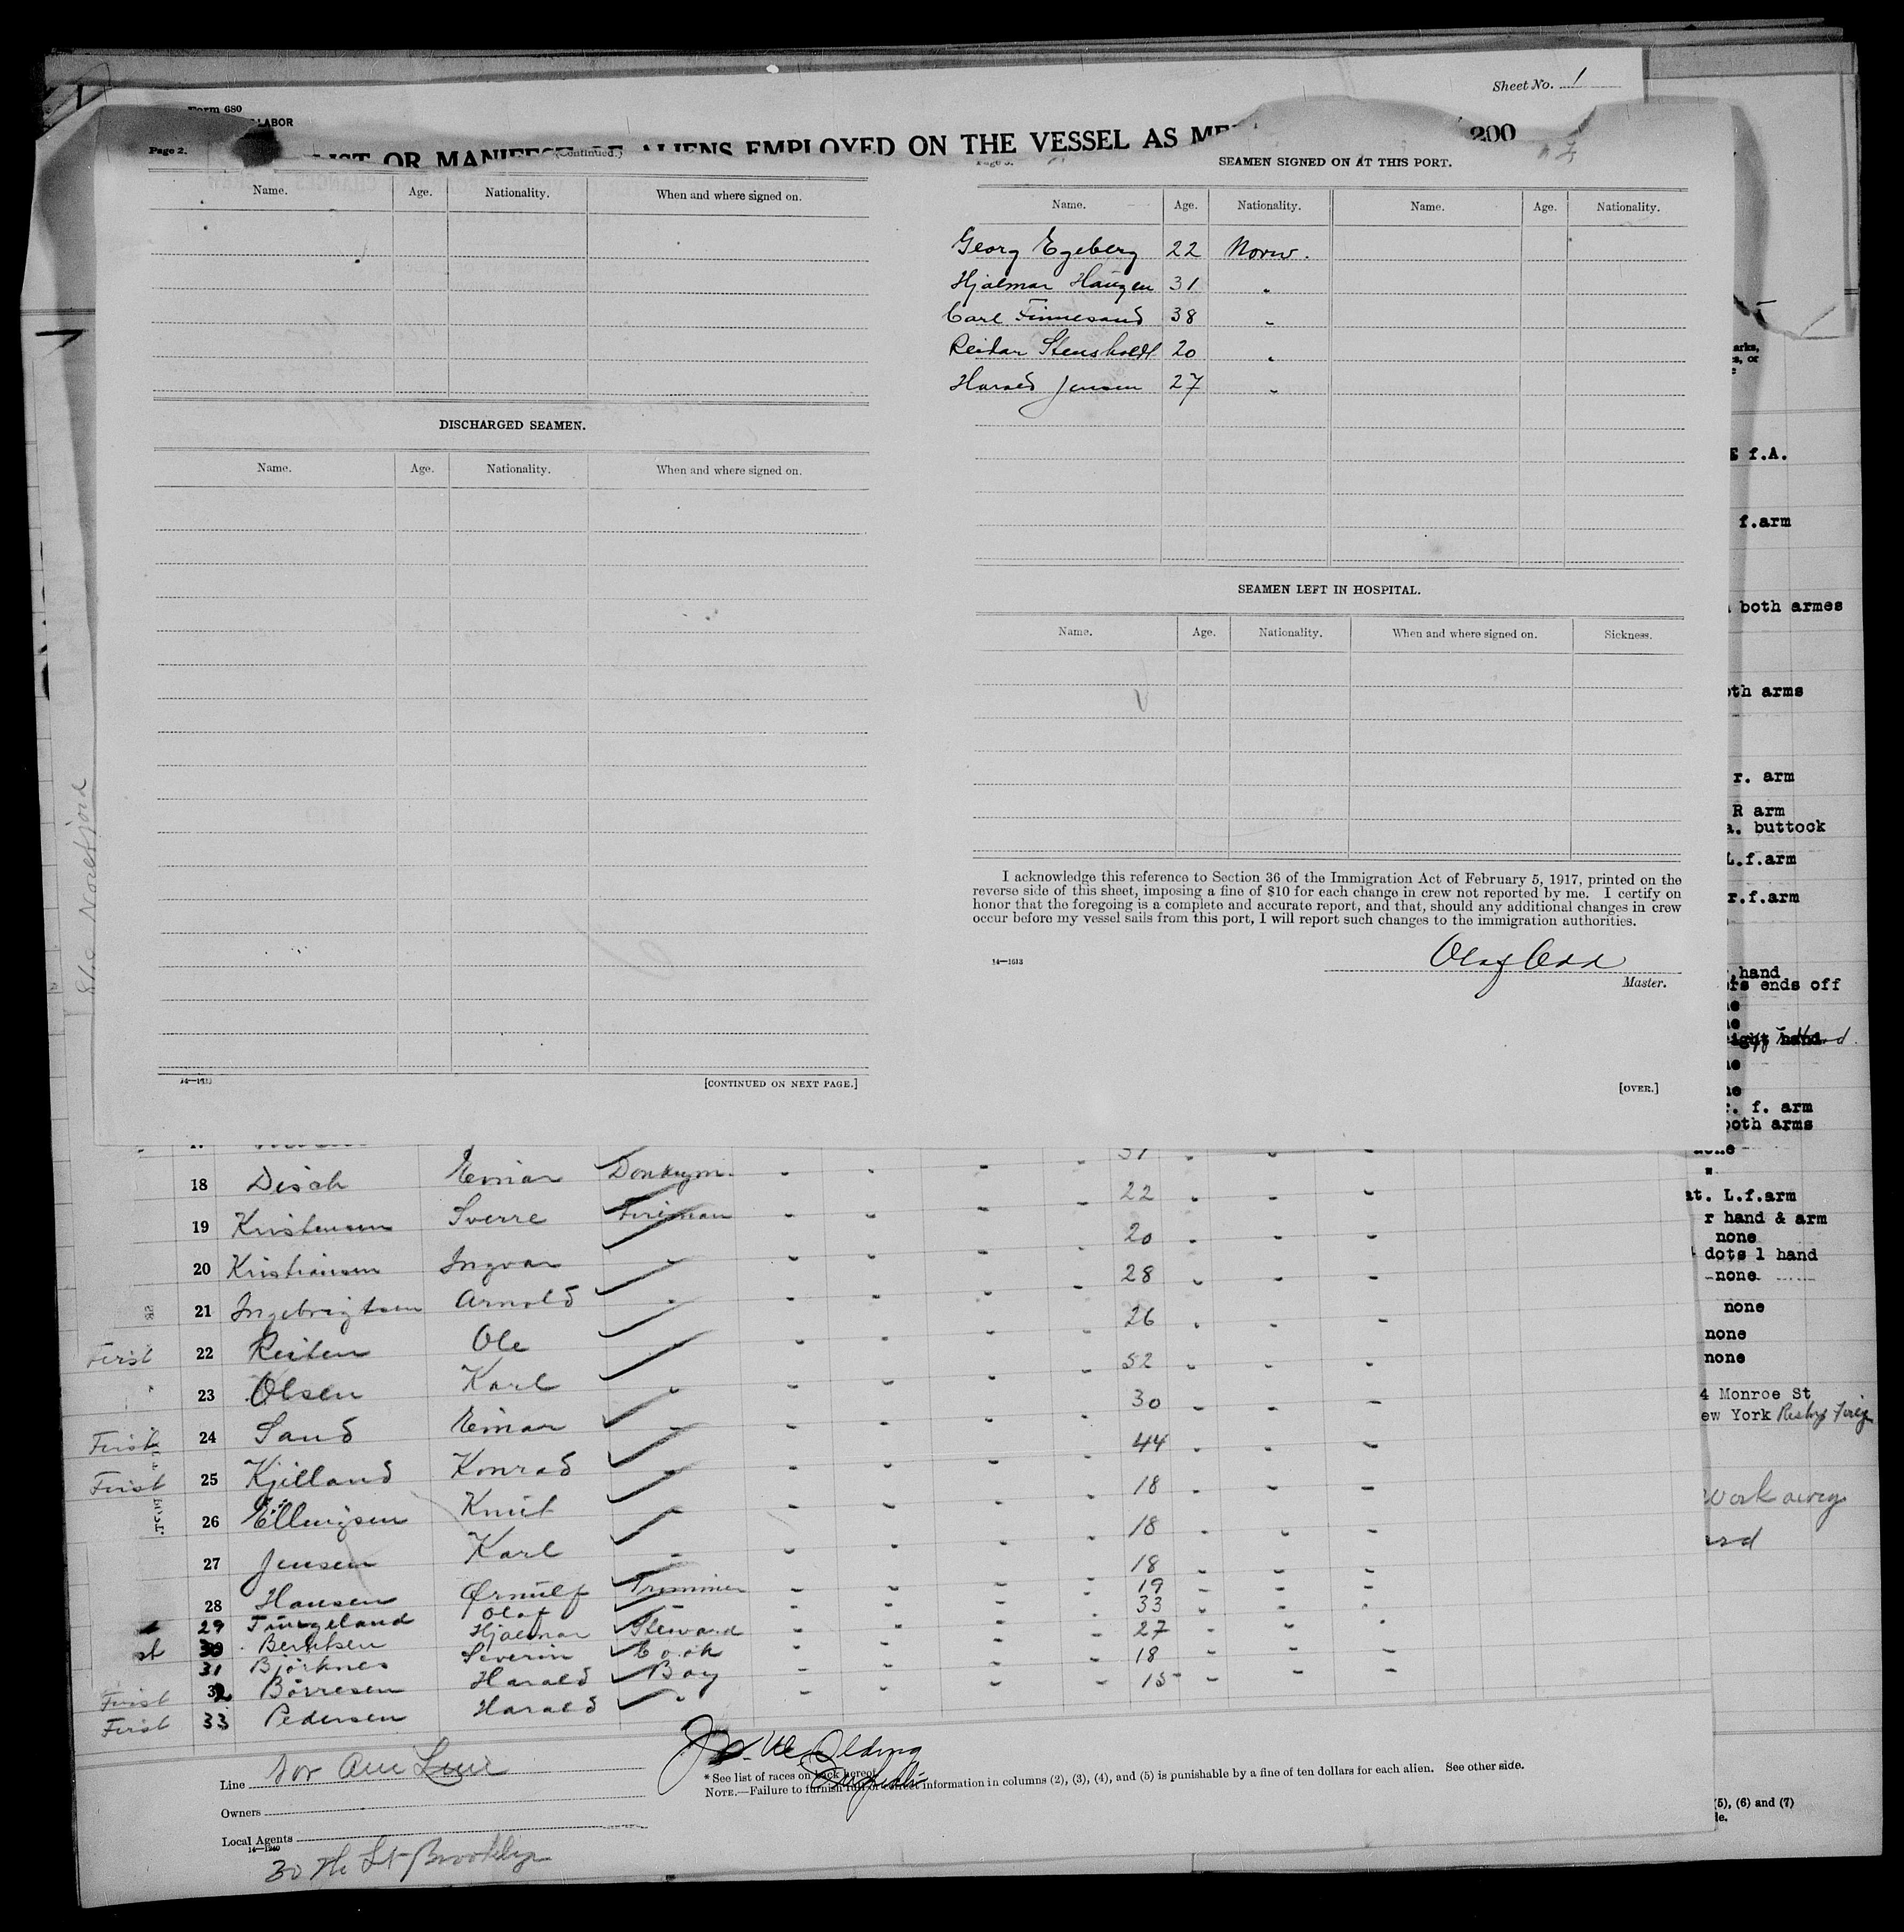 Sheet No. 1
Form 680
LABOR
LIST OR MANIFEST OF ALIENS EMPLOYED ON THE VESSEL AS
200
Page 2.
(Continued.)
Name. Age. Nationality. When and where signed on.
DISCHARGED SEAMEN.
Name. Age. Nationality. When and where signed on.
14—1613
[CONTINUED ON NEXT PAGE.]
Page 3.
SEAMEN SIGNED ON AT THIS PORT.
Name. Age. Nationality. Name. Age. Nationality.
Georg Egeberg 22 Norw.
Hjalmar Haugen 31 "
Carl Finnesand 38 "
Reidar Stensholdt 20 "
Harald Jensen 27 "
SEAMEN LEFT IN HOSPITAL.
Name. Age. Nationality. When and where signed on. Sickness.
I acknowledge this reference to Section 36 of the Immigration Act of February 5, 1917, printed on the
reverse side of this sheet, imposing a fine of $10 for each change in crew not reported by me. I certify on
honor that the foregoing is a complete and accurate report, and that, should any additional changes in crew
occur before my vessel sails from this port, I will report such changes to the immigration authorities.
14—1613
Master.
[OVER.]
Norefjord
18 Disch Einar Donkeym. 22
19 Kristensen Sverre Fireman 20
20 Kristiansen Ingvar " 28
21 Ingebrigtsen Arnold " 26
First 22 Reiten Ole 52
" 23 Olsen Karl " 30
First 24 Sand Einar " 44
First 25 Kjelland Konrad " 18
26 Ellingsen Knut 18
27 Jensen Karl " 18
28 Hansen Ørnulf Trimmer 19
29 Tungeland Olaf 33
st 30 Berntsen Hjalmar Steward 27
31 Björknes Severin Cook 18
First 32 Börresen Harald Boy 15
First 33 Pedersen Harald "
Line Nor Am Line
Owners
Local Agents
14—1240
30 th St Brooklyn
* See list of races on back hereof.
NOTE.—Failure to furnish full or correct information in columns (2), (3), (4), and (5) is punishable by a fine of ten dollars for each alien. See other side.
f.A.
f.arm
both armes
oth arms
r. arm
R arm
a. buttock
L.f.arm
r.f.arm
hand
ers ends off
ight hand
r. f. arm
both arms
none
at. L.f.arm
r hand & arm
none
dots l hand
none
none
none
none
4 Monroe St
ew York
work away
(5), (6) and (7)